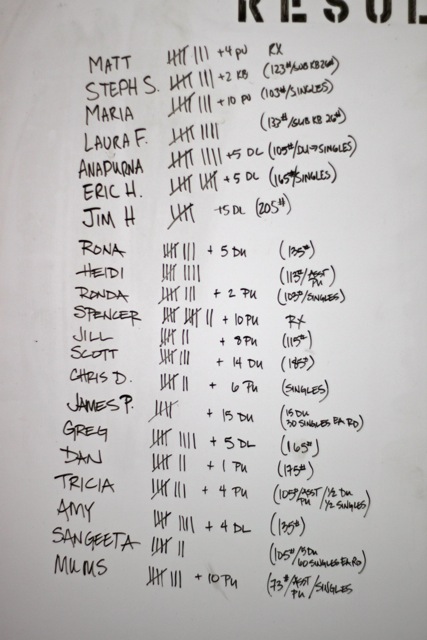 RESUL
MATT 卌 III +4 PU RX
STEPH S. 卌 III +2 KB (123#/SUB KB 26#)
MARIA 卌 III +10 PU (103#/SINGLES)
LAURA F. 卌 IIII (133#/SUB KB 26#)
ANAPURNA 卌 IIII +5 DL (105#/DU→SINGLES)
ERIC H. 卌 卌 +5 DL (165#/SINGLES)
JIM H 卌 +5 DL (205#)
RONA 卌 III +5 DU (135#)
HEIDI 卌 IIII (113#/ASST PU)
RONDA 卌 III +2 PU (103#/SINGLES)
SPENCER 卌 卌 II +10 PU RX
JILL 卌 II +8 PU (115#)
SCOTT 卌 III +14 DU (185#)
CHRIS D. 卌 II +6 PU (SINGLES)
JAMES P. 卌 +15 DU (15 DU 30 SINGLES EA RD)
GREG 卌 IIII +5 DL (165#)
DAN 卌 II +1 PU (175#)
TRICIA 卌 III +4 PU (105#/ASST PU/½ DU ½ SINGLES)
AMY 卌 IIII +4 DL (135#)
SANGEETA 卌 II (105#/5 DU 60 SINGLES EA RD)
MUMS 卌 III +10 PU (73#/ASST PU/SINGLES